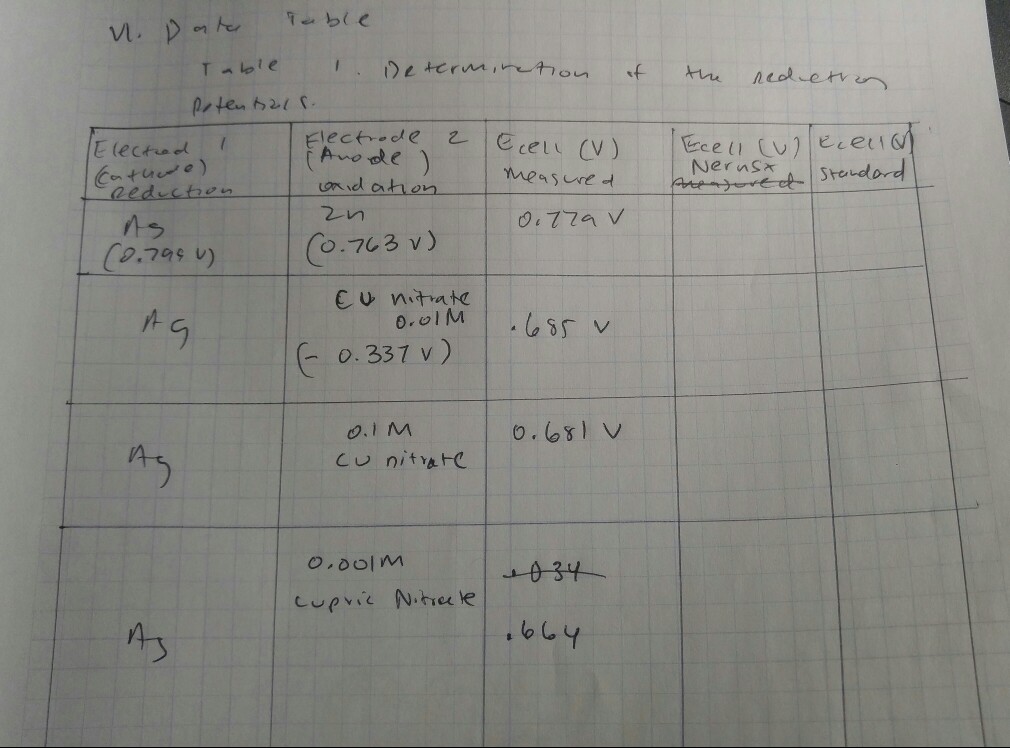 VI. Data Table
Table 1. Determination of the reduction
Potentials.
Electrod 1
(Cathode)
Reduction
Electrode 2
(Anode)
oxidation
Ecell (V)
measured
Ecell (V)
Nernst
measured
Ecell (V)
standard
Ag
(0.799 V)
Zn
(0.763 V)
0.779 V
Ag
CU nitrate
0.01M
(- 0.337 V)
.685 V
Ag
0.1M
CU nitrate
0.681 V
Ag
0.001M
Cupric Nitrate
.034
.664